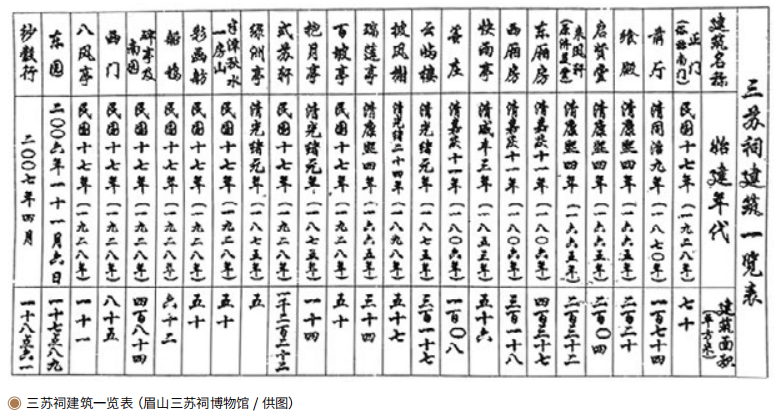 三苏祠建筑一览表
建筑名称 始建年代 建筑面积(平方米)
正门(俗称南门) 民国十七年(一九二八年) 七十
前厅 清同治九年(一八七〇年) 一百七十四
飨殿 清康熙四年(一六六五年) 二百二十
启贤堂 清康熙四年(一六六五年) 二百〇四
来凤轩(原济美堂) 清康熙四年(一六六五年) 二百三十二
东厢房 清嘉庆十一年(一八〇六年) 四百三十七
西厢房 清嘉庆十一年(一八〇六年) 三百一十八
快雨亭 清咸丰三年(一八五三年) 五十六
庄 清嘉庆十一年(一八〇六年) 一百〇八
云屿楼 清光绪元年(一八七五年) 三百一十七
披风榭 清光绪二十四年(一八九八年) 五十七
瑞莲亭 清康熙四年(一六六五年) 三十四
百坡亭 民国十七年(一九二八年) 五十
抱月亭 清光绪元年(一八七五年) 一十四
式苏轩 民国十七年(一九二八年) 一千二百二十二
绿洲亭 清光绪元年(一八七五年) 五
半潭秋水一房山 民国十七年(一九二八年) 五十
彩画舫 民国十七年(一九二八年) 五十
船坞 民国十七年(一九二八年) 六十二
碑亭及南园 民国十七年(一九二八年) 四百八十四
西门 民国十七年(一九二八年) 八十五
八风亭 民国十七年(一九二八年) 一十一
东园 二〇〇六年一十一月六日 一十七点八九
二〇〇七年四月 一十八点六一
三苏祠建筑一览表（眉山三苏祠博物馆 / 供图）